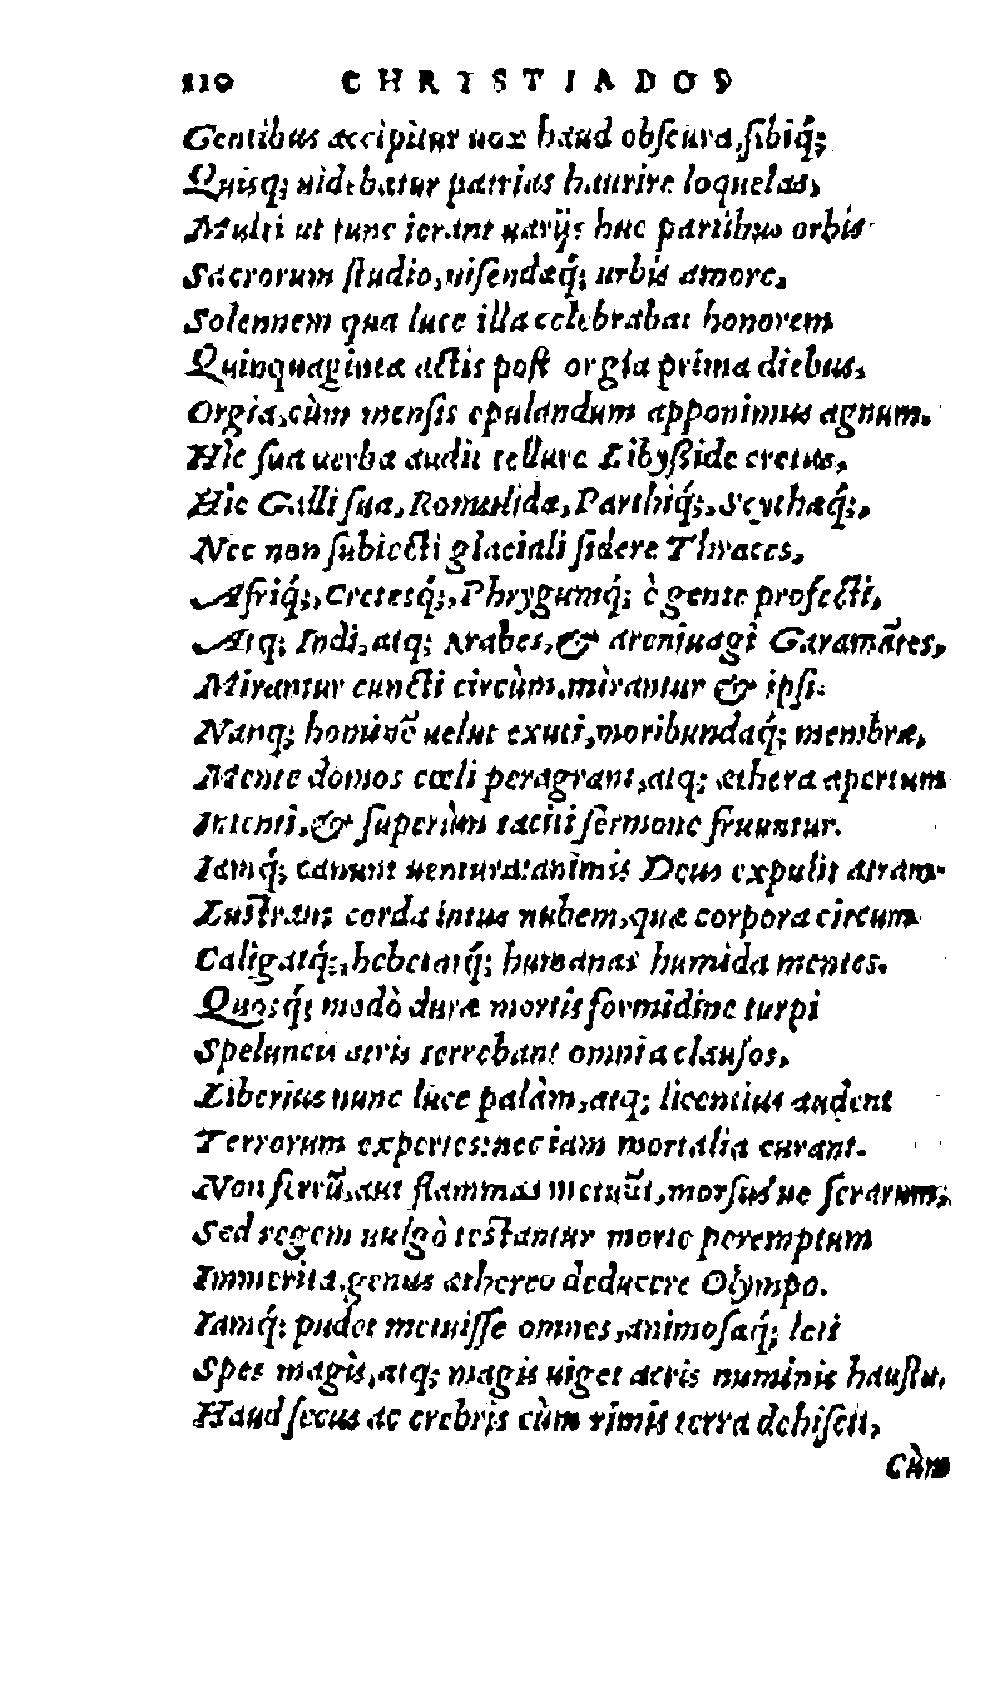 210 CHRISTIADOS
Gentibus accipitur uox haud obscura, sibiq́;
Quisq; uidebatur patrias haurire loquelas,
Multi ut tunc ierant uarijs huc partibus orbis
Sacrorum studio, uisendæq́; urbis amore,
Solennem qua luce illa celebrabat honorem
Quinquaginta actis post orgia prima diebus,
Orgia, cùm mensis epulandum apponimus agnum.
Hic sua uerba audit tellure Libysside cretus,
Hic Galli sua, Romulidæ, Parthiq́;, Scythæq́;,
Nec non subiecti glaciali sidere Thraces,
Afriq́;, Cretesq́;, Phrygumq́; è gente profecti,
Atq; Indi, atq; Arabes, & areniuagi Garamãtes,
Mirantur cuncti circùm, mirantur & ipsi.
Nanq; hominẽ uelut exuti, moribundaq́; membra,
Mente domos cœli peragrant, atq; æthera apertum
Intenti, & superùm taciti sermone fruuntur.
Iamq́; canunt uentura: animis Deus expulit atram
Lustrans corda intus nubem, quæ corpora circum
Caligatq́;, hebetatq́; humanas humida mentes.
Quosq́; modò duræ mortis formidine turpi
Speluncis atris terrebant omnia clausos,
Liberius nunc luce palàm, atq; licentius audent
Terrorum expertes: nec iam mortalia curant.
Non ferrũ, aut flammas metuũt, morsus'ue ferarum,
Sed regem uulgò testantur morte peremptum
Immerita, genus æthereo deducere Olympo.
Iamq́; pudet metuisse omnes, animosaq́; leti
Spes magis, atq; magis uiget acris numinis haustu,
Haud secus ac crebris cùm rimis terra dehiscit,
Cùm